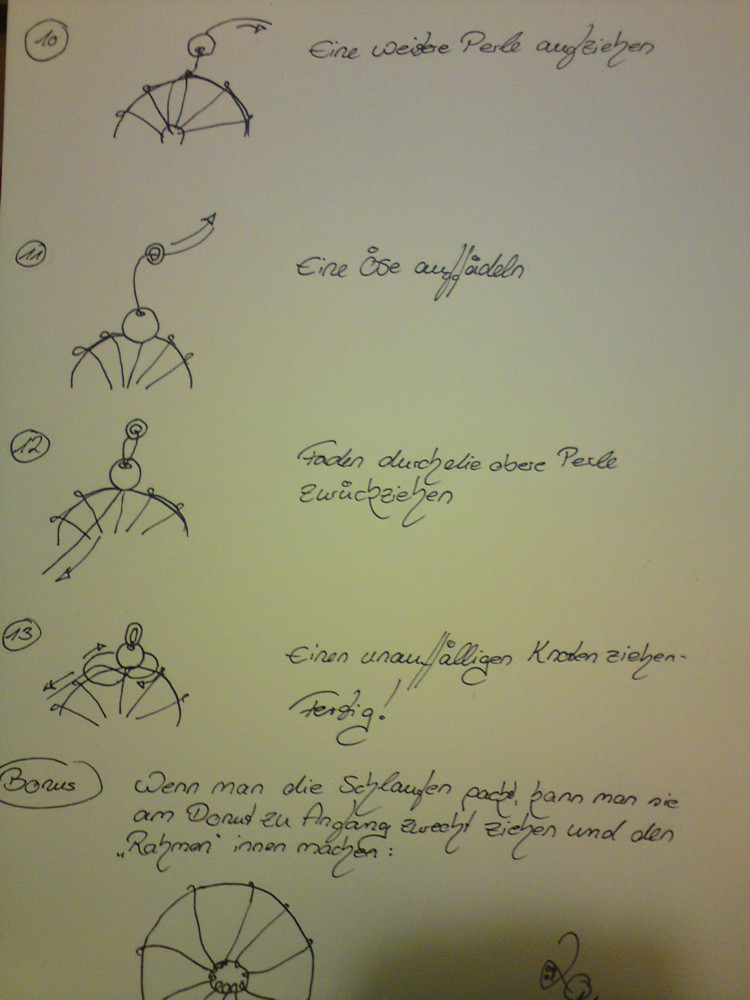 10
Eine weitere Perle aufziehen
11
Eine Öse auffädeln
12
Faden durch die obere Perle
zurückziehen
13
Einen unauffälligen Knoten ziehen-
Fertig!
Bonus
Wenn man die Schlaufen packt, kann man sie
am Donut zu Anfang zurecht ziehen und den
„Rahmen" innen machen: